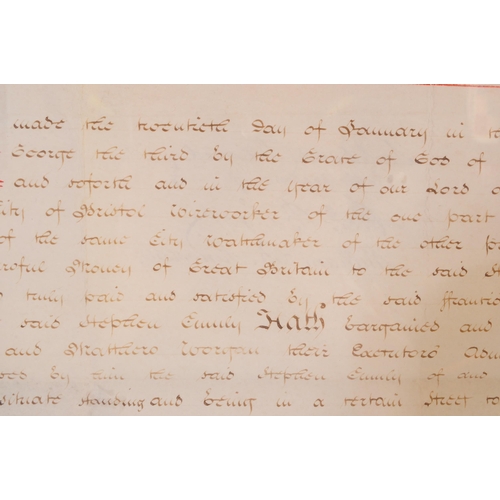 made the twentieth Day of January in
George the third by the Grace of God of
and soforth and in the Year of our Lord
of Bristol Wireworker of the one part
of the same City Watchmaker of the other
Money of Great Britain to the said
truly paid and satisfied by the said
said Stephen Emily Hath bargained and
and Matthew Worgan their Executors
by him the said Stephen Emily of and
situate standing and being in a certain Street